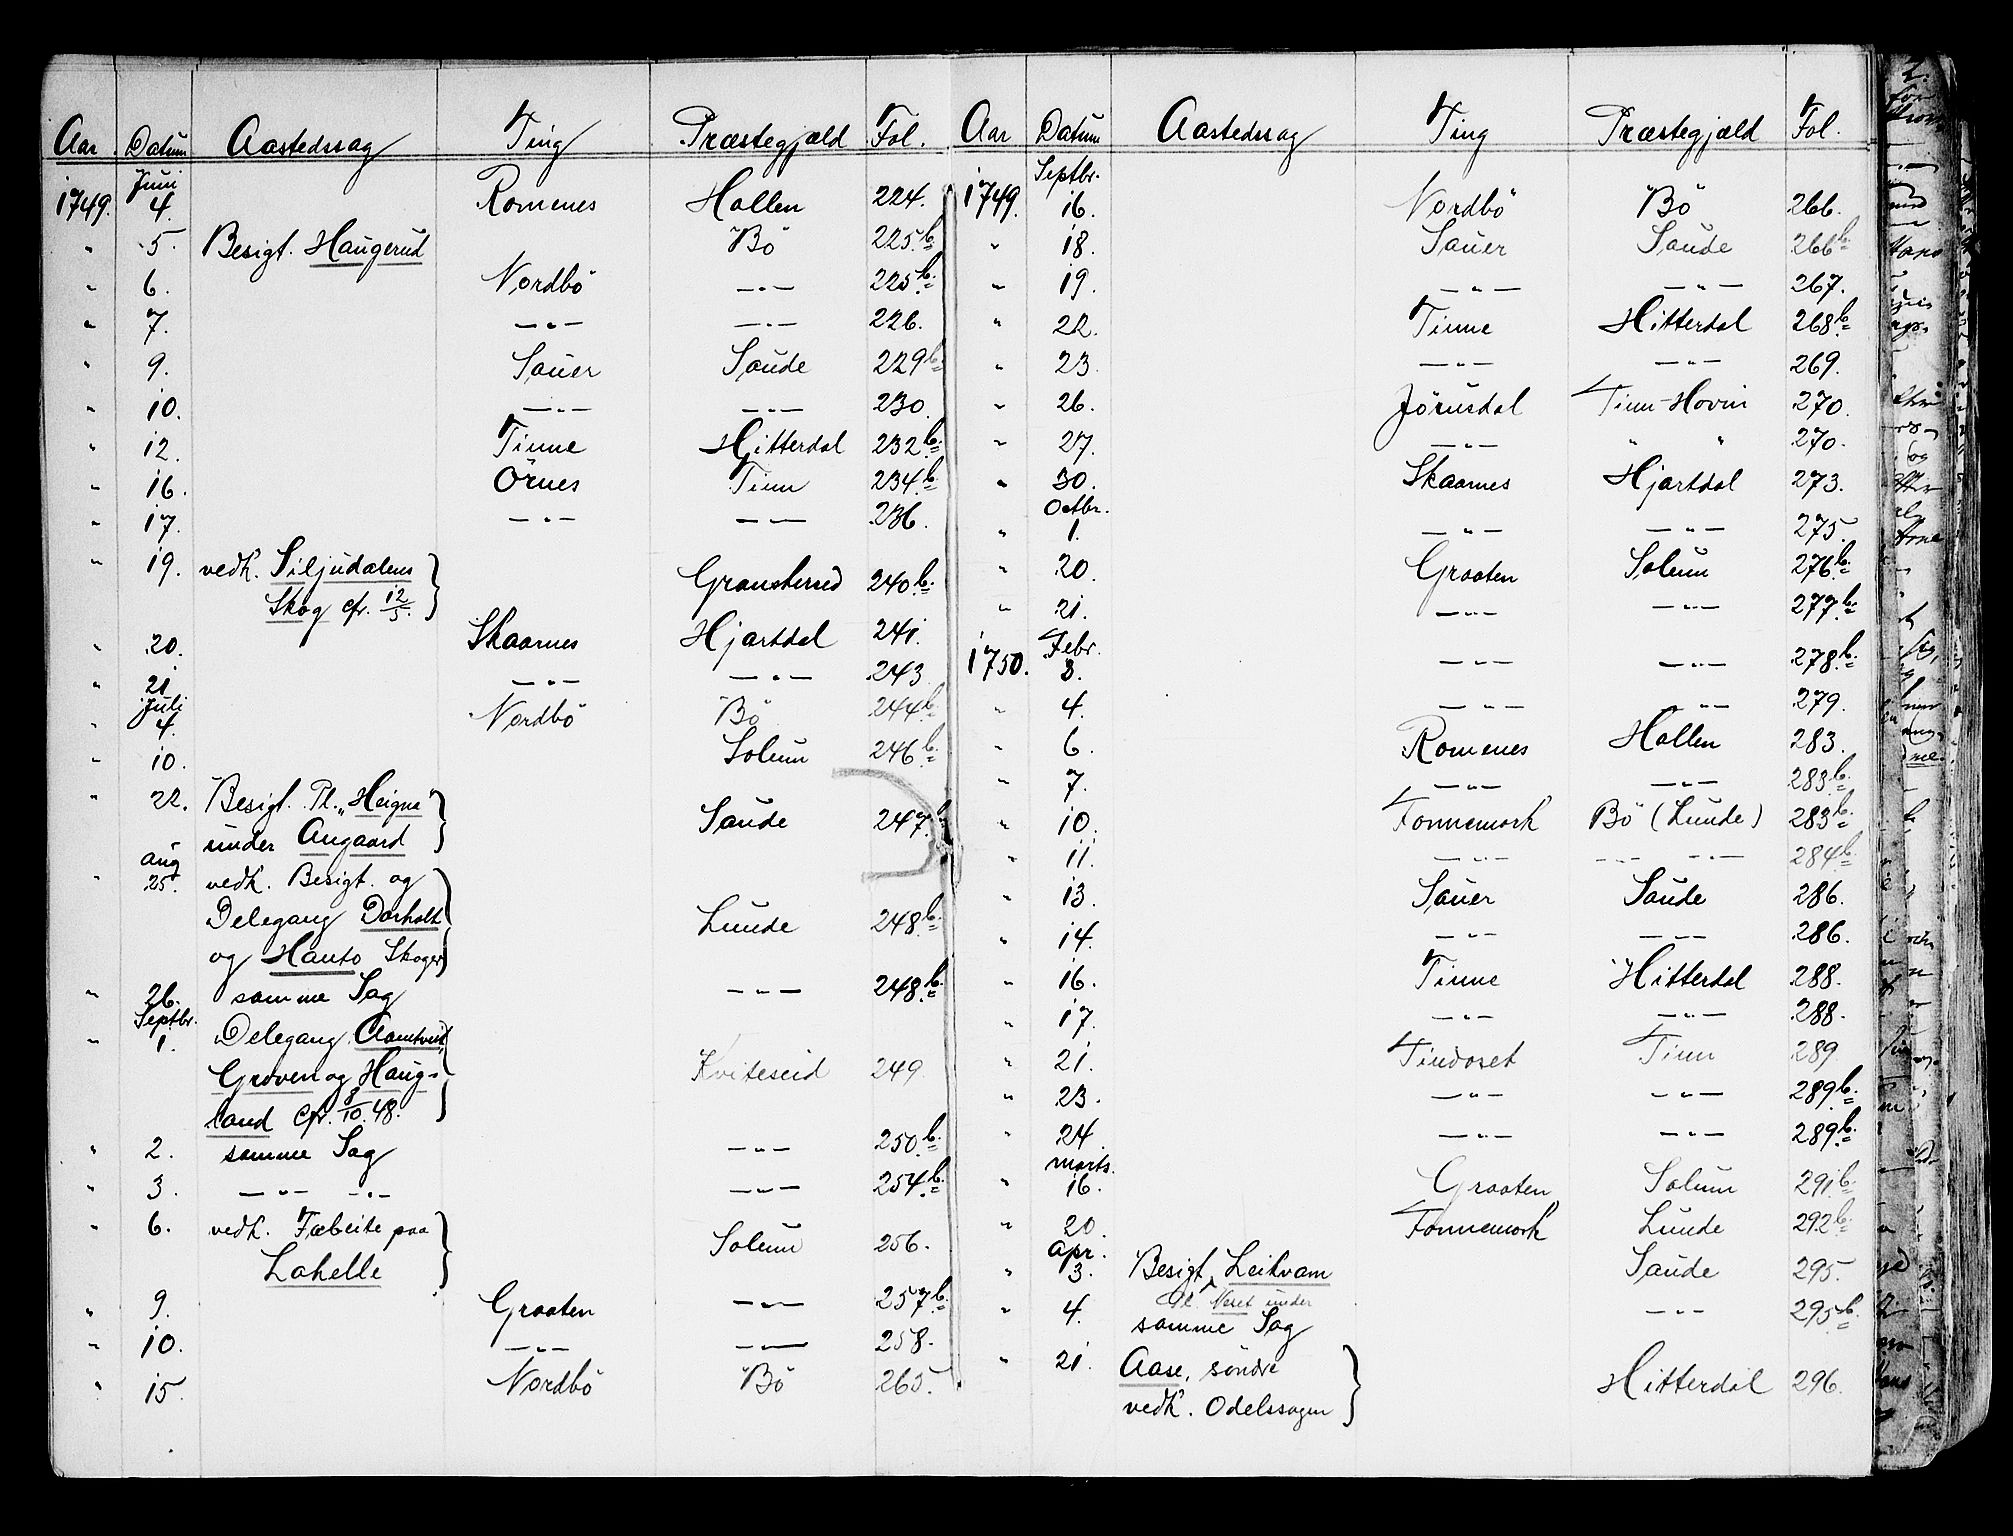 Aar Datum Aastedssag Ting Præstegjæld Fol.
1749. Juni 4. Romenes Hollen 224.
" 5. Besigt. Haugerud Bö 225.b.
" 6. Nordbö —"— 225b.
" 7. —"— —"— 226.
" 9. Sauer Saude 229b.
" 10. —"— —"— 230.
" 12. Tinne Hitterdal 232.b.
" 16. Örnes Tinn 234.b.
" 17. —"— —"— 236.
" 19. vedk. Siljudalens
Skog cfr. 12/5. Gransherred 240b.
" 20. Skaarnes Hjartdal 241.
" 21. —"— —"— 243
" Juli 4. Nordbö Bö 244b.
" 10. Solum 246b.
" 22. Besigt. Pl. „Heigna"
under Aagaard Saude 247.b.
" aug 25. vedk. Besigt. og
Delegang Dorholt
og Hauto Skoger Lunde 248b.
" 26. samme Sag —"— 248.b.
" Septbr. 1. Delegang Aamtveit,
Groven og Haug-
land cfr. 8/10.48. Kviteseid 249.
" 2. samme Sag —"— 250.b.
" 3. —"— —"— —"— 254.b.
" 6. vedk. Fæbeite paa
Lahelle Solum 256.
" 9. Graaten —"— 257b.
" 10. —"— —"— 258.
" 15. Nordbö Bö 265.
Aar Datum Aastedssag Ting Præstegjæld Fol.
1749. Septbr. 16. Nordbö Bö 266.
" 18. Sauer Saude 266b.
" 19. —"— —"— 267.
" 22. Tinne Hitterdal 268b.
" 23. —"— —"— 269.
" 26. Jörusdal Tinn-Hovin 270.
" 27. —"— " " 270.
" 30. Skaarnes Hjartdal 273.
" Octbr. 1. —"— —"— 275.
" 20. Graaten Solum 276b.
" 21. —"— —"— 277b.
1750. Febr. 3. —"— —"— 278.b.
" 4. —"— —"— 279.
" 6. Romenes Hollen 283.
" 7. —"— —"— 283b.
" 10. Fonnemork Bö (Lunde) 283b.
" 11. —"— —"— —"— 284b.
" 13. Sauer Saude 286.
" 14. —"— —"— 286.
" 16. Tinne Hitterdal 288.
" 17. —"— —"— 288.
" 21. Tindoset Tinn 289.
" 23. —"— —"— 289b.
" 24. —"— —"— 289.b.
" marts. 16. Graaten Solum 291.b.
" 20. Fonnemork Lunde 292b.
" Apr. 3. Besigt. Leikvam Saude 295.
Pl. Neset under
" 4. samme Sag —"— 295b.
" 21. Aase, söndre
vedk. Odelssagen Hitterdal 296.